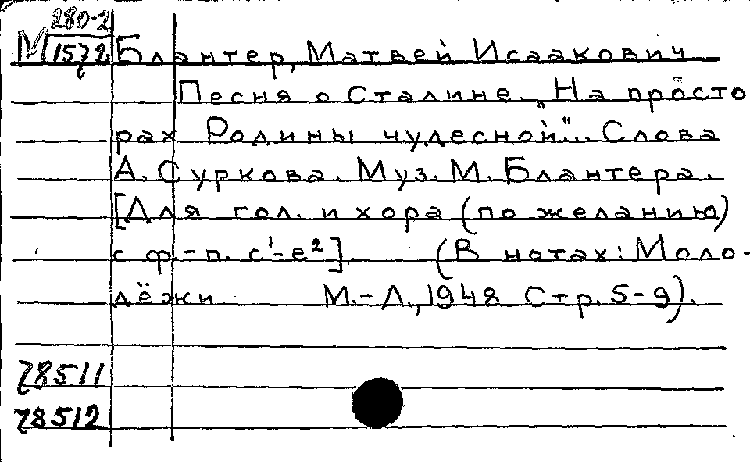 280-2
М 1572 Блантер, Матвей Исаакович
Песня о Сталине. „На просто
рах Родины чудесной". Слова
А. Суркова. Муз. М. Блантера.
[Для гол. и хора (по желанию)
с ф.-п. c¹-e²] (В нотах: Моло-
дёжи М.-Л., 1948 Стр. 5-9).
78511
78512